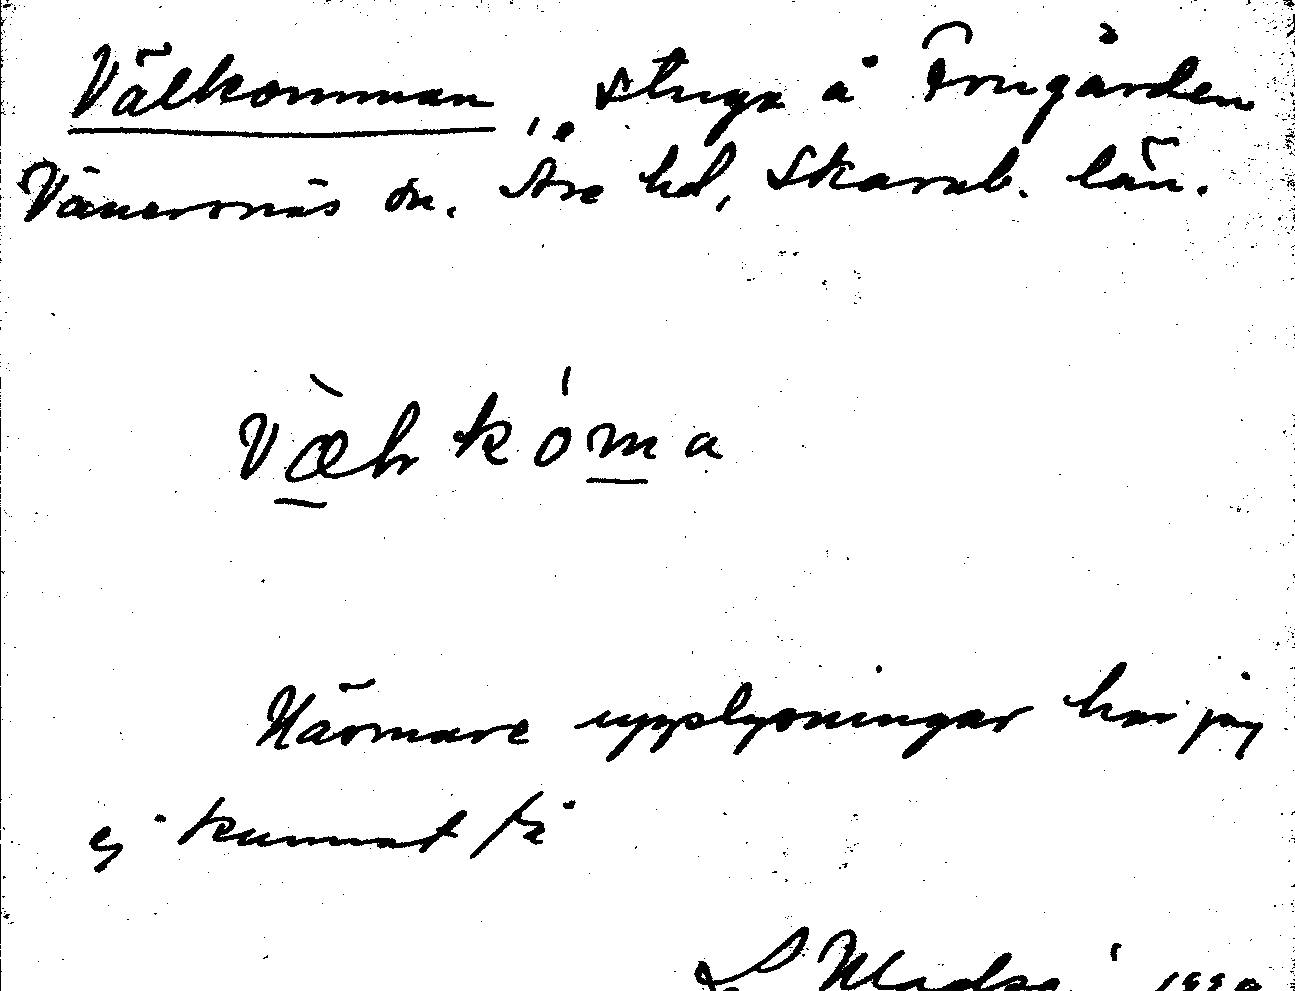 Välkomman, stuga å Frugården
Vänersnäs sn. Åse hd, Skarab. län.
Vælkóma
Närmare upplysningar har jag
ej kunnat få